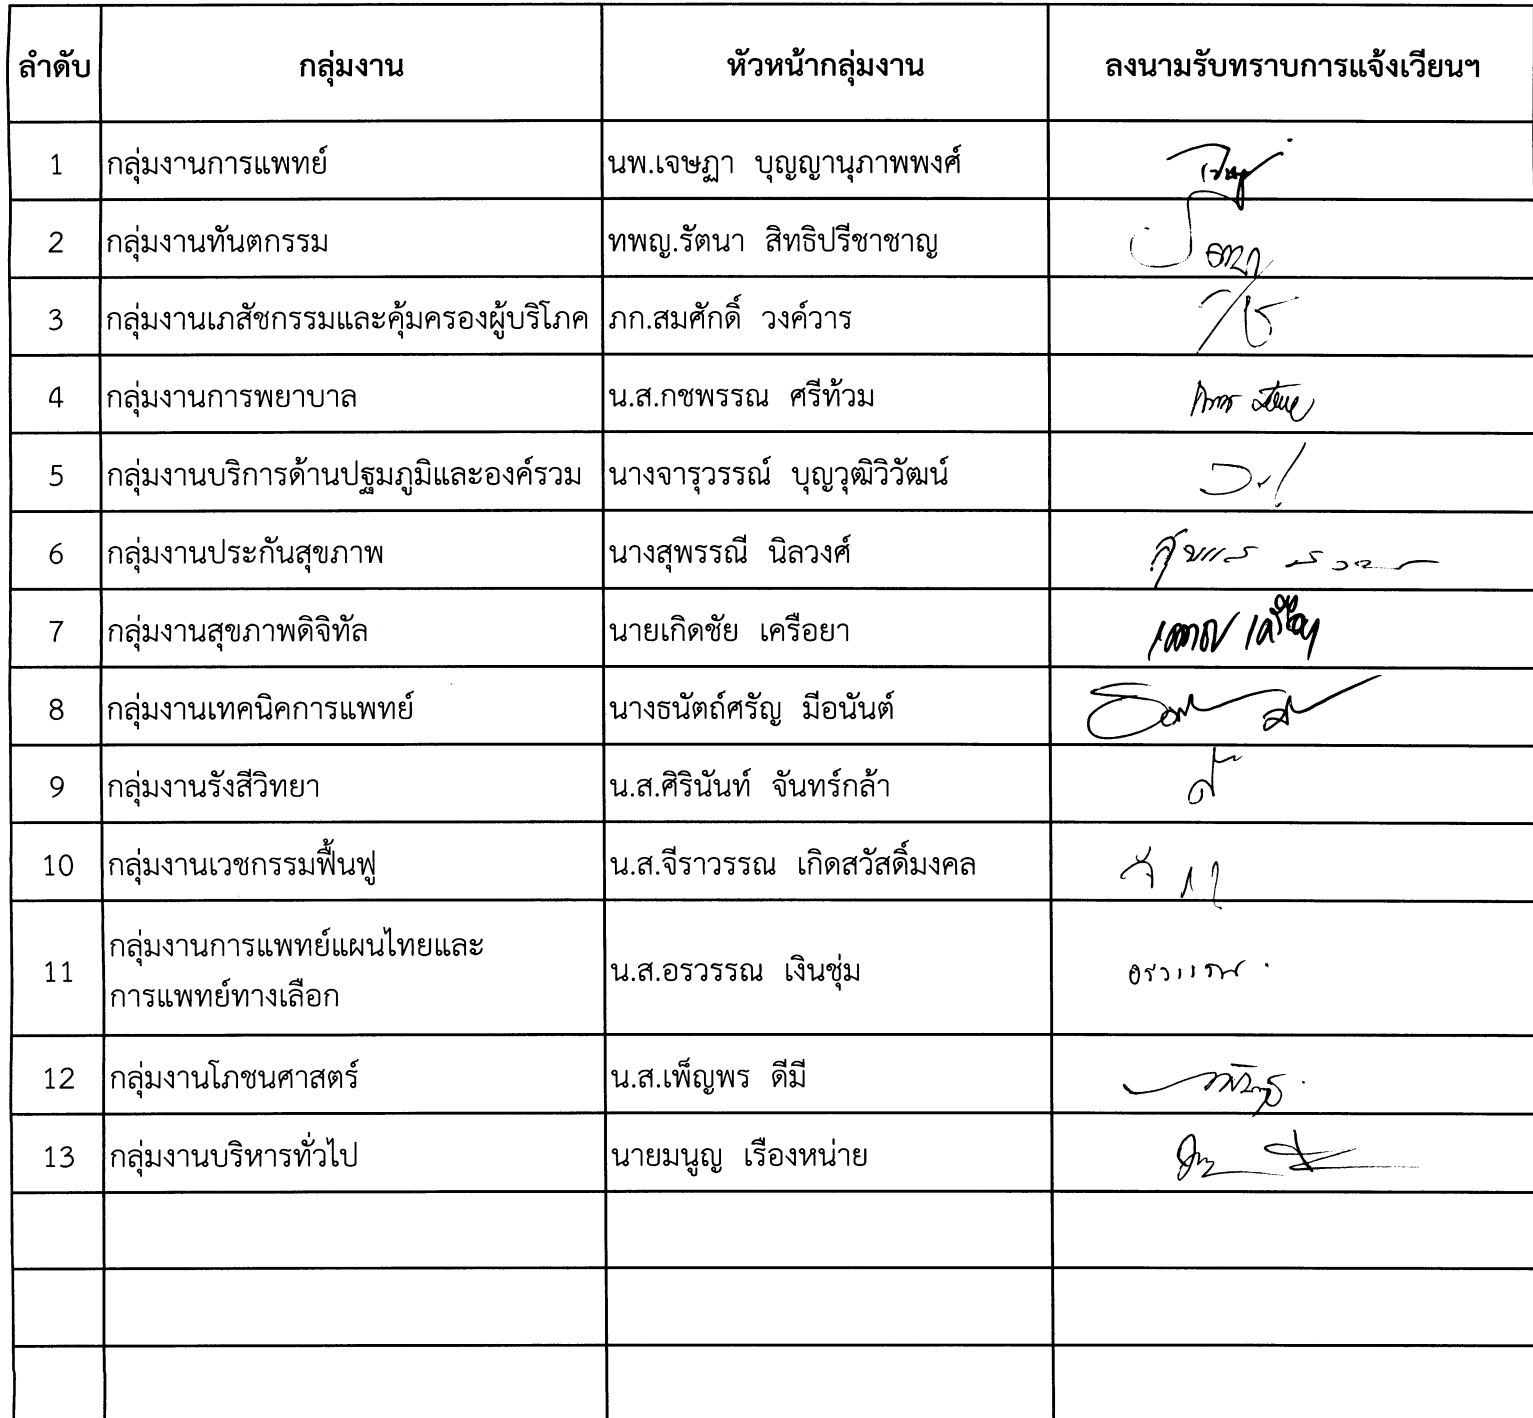 ลำดับ กลุ่มงาน หัวหน้ากลุ่มงาน ลงนามรับทราบการแจ้งเวียนฯ
1 กลุ่มงานการแพทย์ นพ.เจษฏา บุญญานุภาพพงศ์
2 กลุ่มงานทันตกรรม ทพญ.รัตนา สิทธิปรีชาชาญ
3 กลุ่มงานเภสัชกรรมและคุ้มครองผู้บริโภค ภก.สมศักดิ์ วงค์วาร
4 กลุ่มงานการพยาบาล น.ส.กชพรรณ ศรีท้วม
5 กลุ่มงานบริการด้านปฐมภูมิและองค์รวม นางจารุวรรณ์ บุญวุฒิวิวัฒน์
6 กลุ่มงานประกันสุขภาพ นางสุพรรณี นิลวงศ์
7 กลุ่มงานสุขภาพดิจิทัล นายเกิดชัย เครือยา
8 กลุ่มงานเทคนิคการแพทย์ นางธนัตถ์ศรัญ มีอนันต์
9 กลุ่มงานรังสีวิทยา น.ส.ศิรินันท์ จันทร์กล้า
10 กลุ่มงานเวชกรรมฟื้นฟู น.ส.จีราวรรณ เกิดสวัสดิ์มงคล
กลุ่มงานการแพทย์แผนไทยและ
11 น.ส.อรวรรณ เงินชุ่ม อรวรรณ
การแพทย์ทางเลือก
12 กลุ่มงานโภชนศาสตร์ น.ส.เพ็ญพร ดีมี
13 กลุ่มงานบริหารทั่วไป นายมนูญ เรืองหน่าย